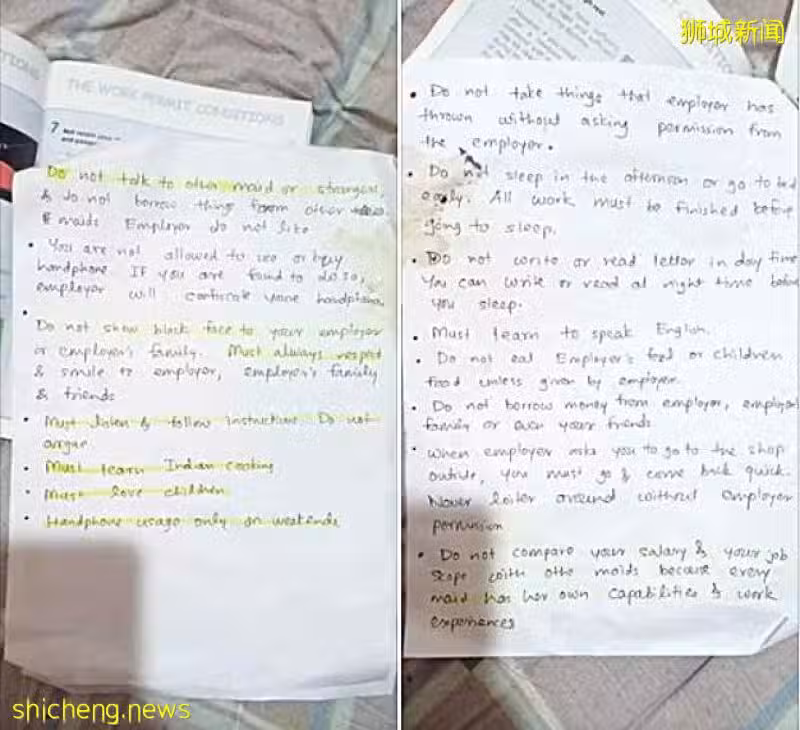 THE WORK PERMIT CONDITIONS
7
Do not talk to other maid or strangers,
& do not borrow thing from other
& maids. Employer do not like
• You are not allowed to use or buy
handphone. IF you are found to do so,
employer will confiscate your handphone
•
Do not show black face to your employer
or employer's family. Must always respect
& smile to employer, employer's family
& friends
• Must listen & follow instructions. Do not
argue
• Must learn Indian cooking
• Must love children
• Handphone usage only on weekends
shicheng.news
狮城新闻
• Do not take things that employer has
thrown without asking permission from
the employer.
• Do not sleep in the afternoon or go to bed
early. All work must be finished before
going to sleep.
• Do not write or read letter in day time
You can write or read at night time before
you sleep.
• Must learn to speak English.
• Do not eat Employer's food or children
food unless given by employer.
• Do not borrow money from employer, employer
family or even your friends
• When employer asks you to go to the shop
outside, you must go & come back quick.
Never loiter around without employer
permission
• Do not compare your salary & your job
scope with othe maids because every
maid has her own capabilities & work
experiences